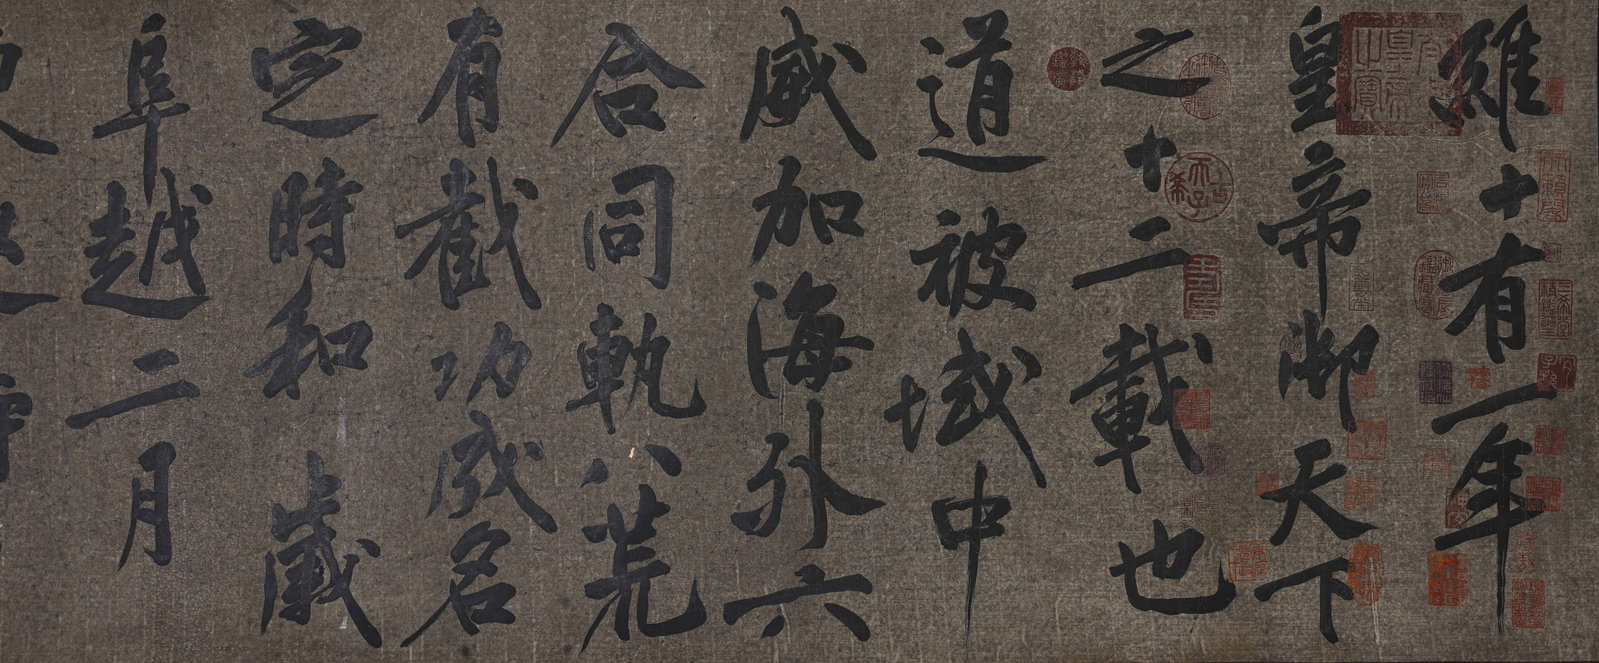 維十有一年
皇帝御天下
之十二載也
道被域中
威加海外六
合同軌八荒
有截功成名
定時和歲
阜越二月
古希天子